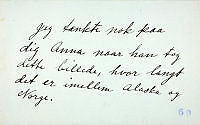 Jeg tænkte nok paa
dig Anna naar han tog
dette billede, hvor langt
det er imellem Alaska og
Norge.
69